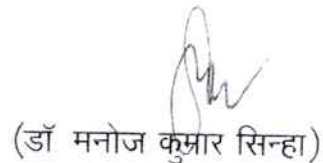 (डॉ मनोज कुमार सिन्हा)